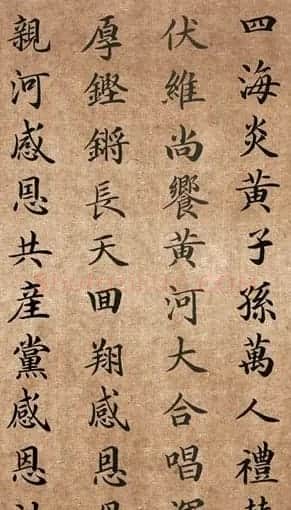 四海炎黃子孫萬人禮
伏維尚饗黃河大合唱
厚鏗鏘長天回翔感恩
親河感恩共產黨感恩